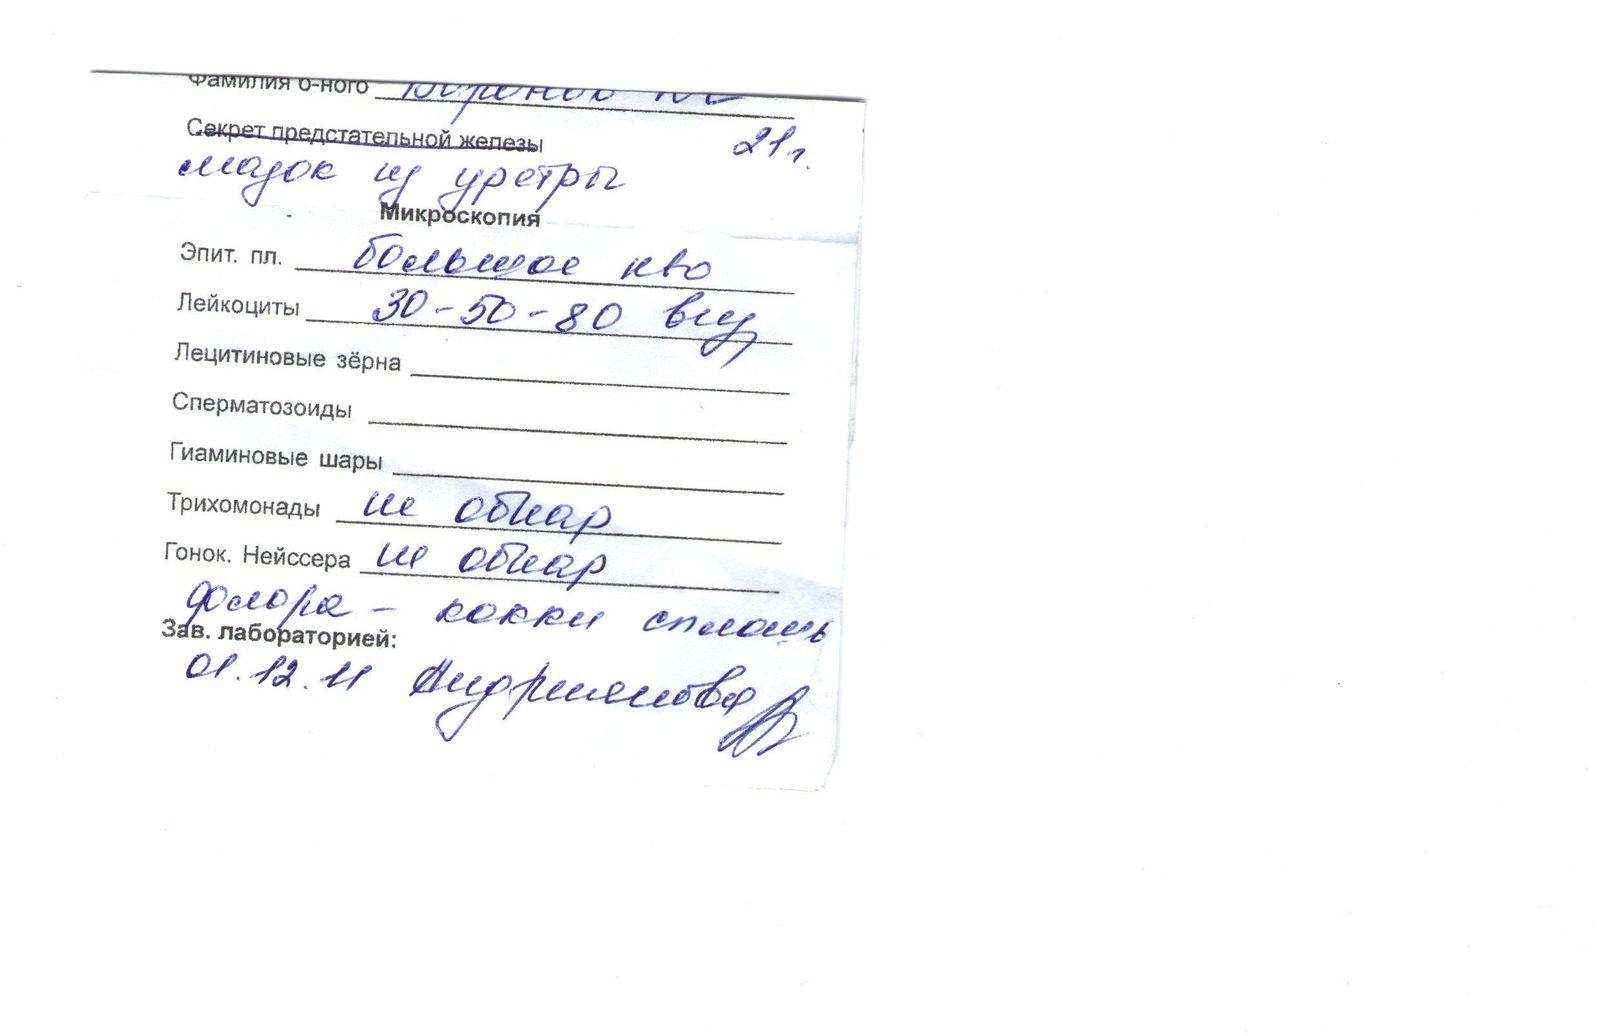 Фамилия б-ного
Секрет предстательной железы 21г.
мазок из уретры
Микроскопия
Эпит. пл. большое кво
Лейкоциты 30-50-80 в п/з
Лецитиновые зёрна
Сперматозоиды
Гиаминовые шары
Трихомонады не обнар
Гонок. Нейссера не обнар
флора - кокки сплошь
Зав. лабораторией:
01.12.11 Андриянова